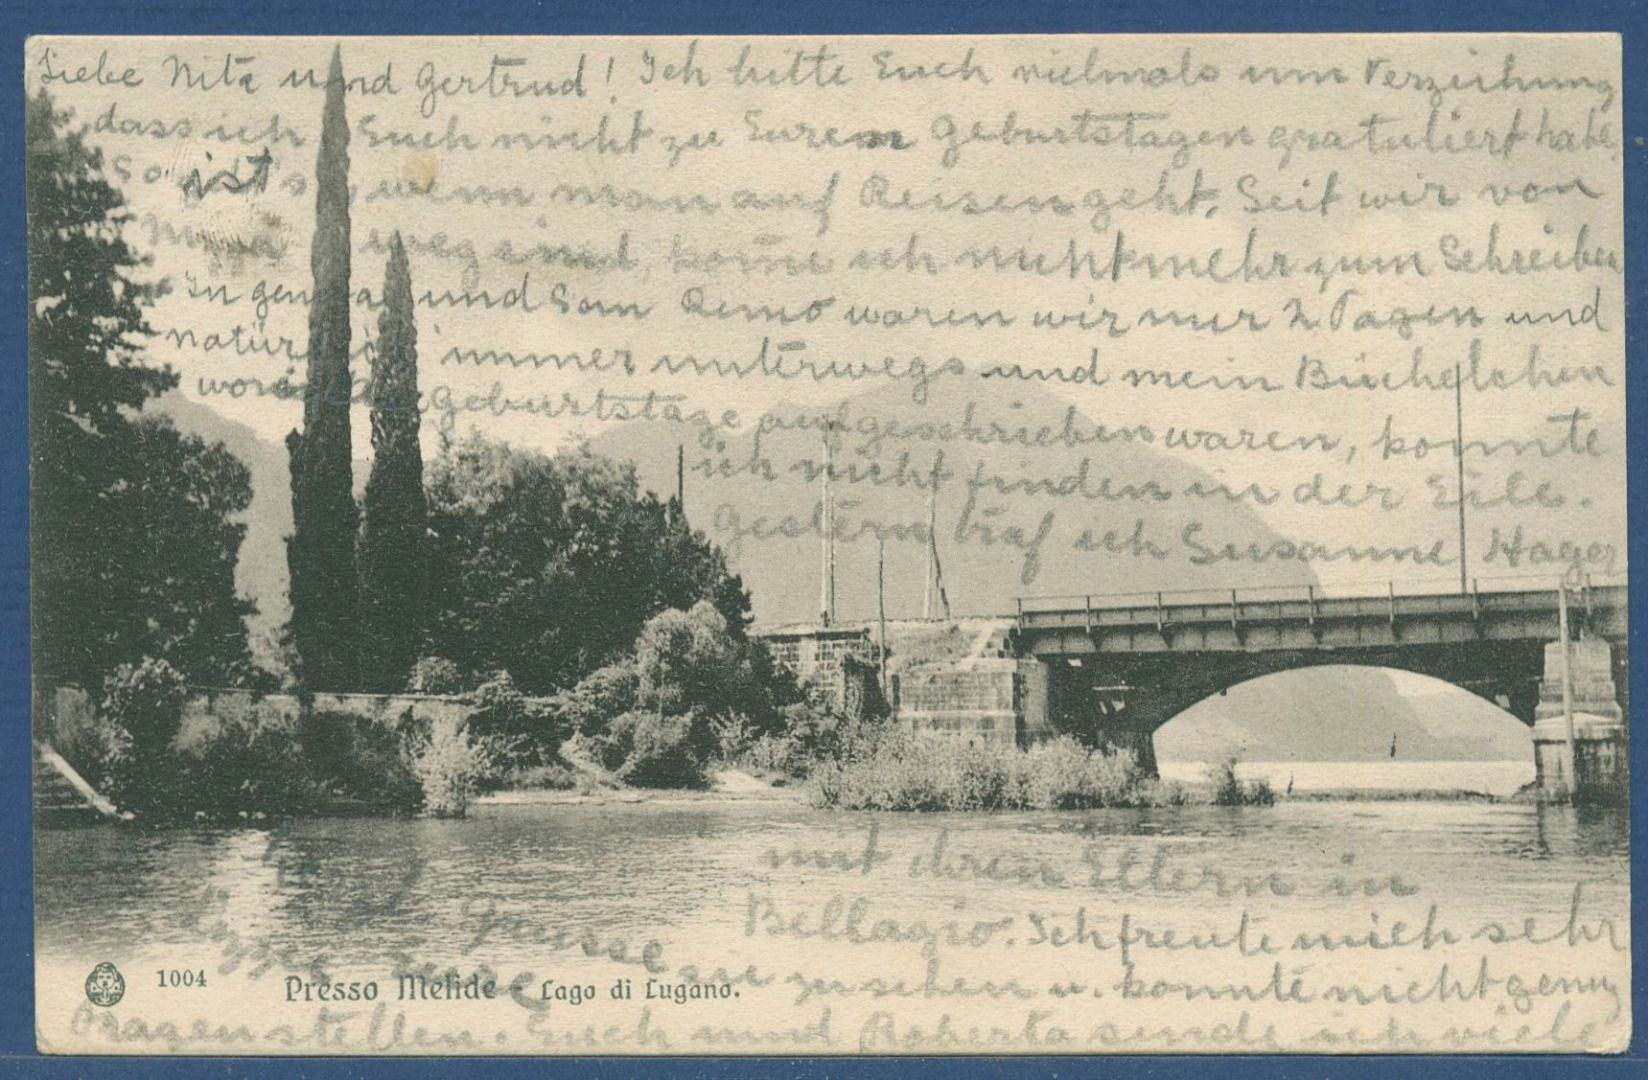 Liebe Nita und Gertrud! Ich bitte Euch vielmals um Verzeihung
dass ich Euch nicht zu Euren Geburtstagen gratuliert habe.
So ist's, wenn man auf Reisen geht. Seit wir von
weg sind, kom̄e ich nicht mehr zum Schreiben
In und San Remo waren wir nur 2 Tagen und
immer unterwegs und mein Büchelchen
Geburtstage aufgeschrieben waren, konnte
ich nicht finden in der Eile.
Gestern traf ich Susanne Hager
mit ihren Eltern in
Bellagio. Ich freute mich sehr
sie zu sehen u. konnte nicht genug
Fragen stellen. Euch und Roberta sende ich viele
Grüsse
1004 Presso Melide - Lago di Lugano.